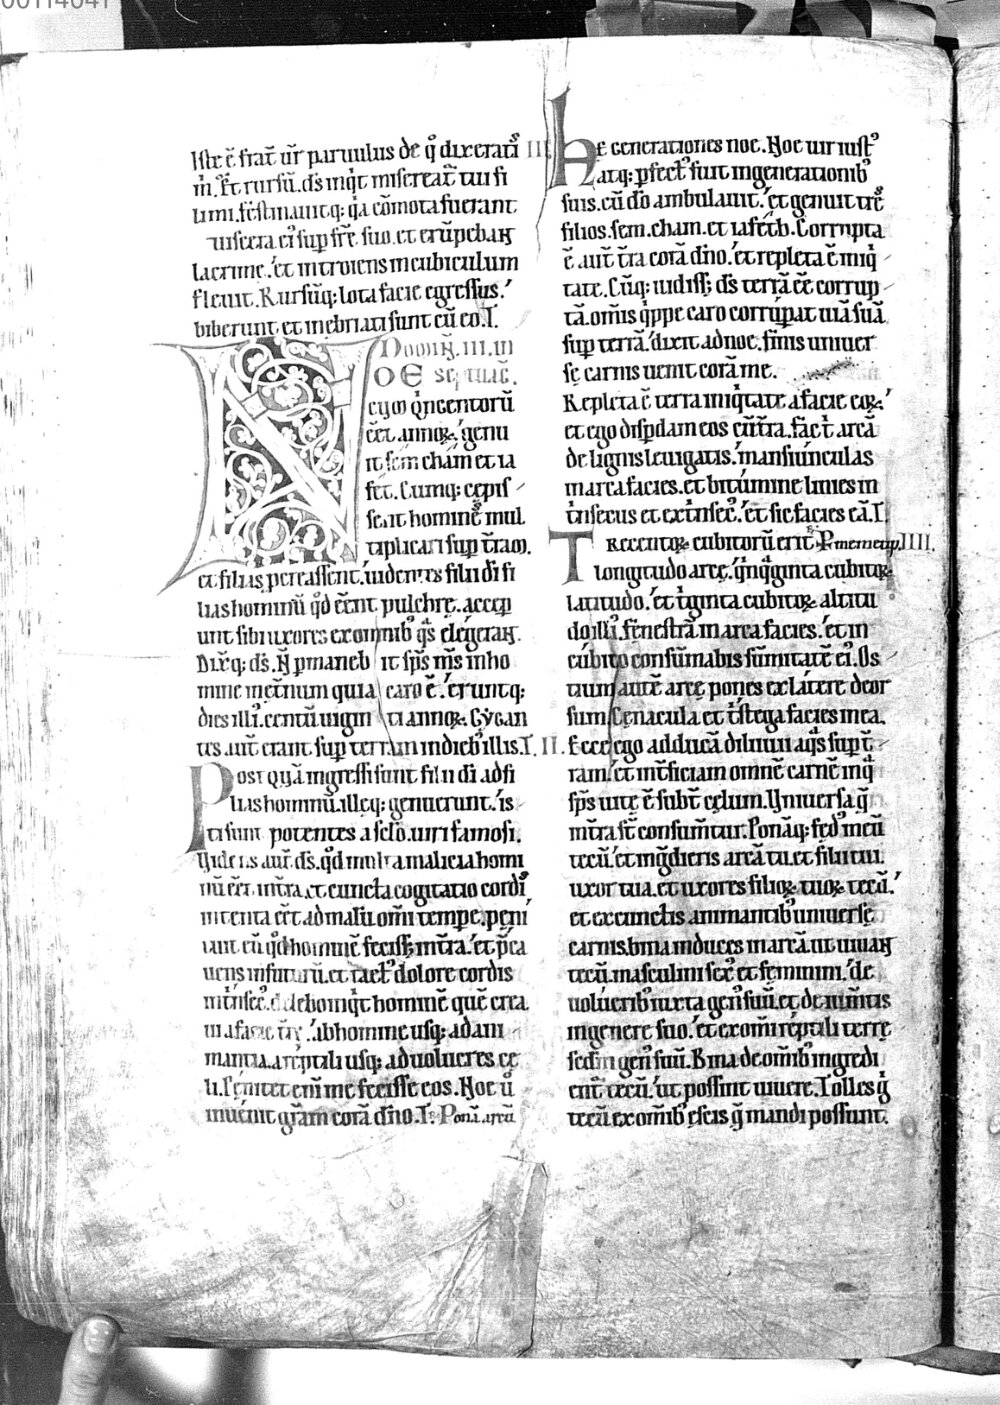 00114041
Iste ē frat̄ ur̄ paruulus de q̊ dixerati III
m̊. Et rursū. ds̄ inq̇t misereat̄ tui fi
li mi. festinauitq: q̇a cōmota fuerant
uiscera ei᷒ sup fr̄e suo. et erūpebaɴt
lacrime. et introiens in cubiculum
fleuit. Rursūq: lota facie egressus.
biberunt et inebriati sunt cū eo. I.
Dōoniꝶ. III. in
OE septuag.
cum q̇ngentorū
eēt annoꝝ. genu
it sem cham et ia
fet. Cumq: cepis
sent hominē mul
tiplicari sup tr̄am.
et filias pcreassent. uidentes filii di fi
lias hominū qd̄ eēnt pulchrę. accep
unt sibi uxores ex omnib᷒ q̇s elegeraɴt.
Dix̄q: ds̄. ɴ pmaneb it sp̄s m̄s in ho
mine inet̄num quia caro ē. eruntq:
dies illi᷒ centū uigin ti annoꝝ. Gẏgan
tes aut̄ erant sup terram in dieb᷒ illis. I. II.
Postquā ingressi sunt filii di ad fi
lias hominū. illęq: genuerunt. is
ti sunt potentes a sc̄lo. uiri famosi.
Uidens aut̄. ds̄. qd̄ multa malicia homi
nū eēt in tr̄a. et cuncta cogitatio cordi᷒
intenta eēt ad malū om̄i tempe. peni
tuit eū qd̄ hominē fecisset in tr̄a. et p̄ca
uens in futurū. et tact᷒ dolore cordis
int̄nsec᷒. delebo inq̇t hominē quē crea
ui a facie tr̄ę. ab homine usq: ad ani
mantia. a reptili usq: ad uolucres cę
li. Penitet enī me fecisse eos. Noe ů
inuenit gr̄am corā dn̄o. I. Ponā. arcū
He generationes noe. Noe uir iust᷒
atq: pfect᷒ fuit in generationib᷒
suis. cū dō ambulauit. et genuit tres
filios. sem. cham. et iafeth. Corrupta
ē. aut̄ tr̄a corā dn̄o. et repleta ē iniq̇
tate. Cūq: uidiss; ds̄ terrā eē corrup
tā. om̄is q̇ppe caro corrupat uiā suā
sup terrā. dixit ad noe. finis uniuer
sę carnis uenit corā me.
Repleta ē terra iniq̇tate a facie eoꝝ.
et ego dispdam eos cū tr̄a. fac t̊ arcā
de lignis leuigatis. mansiunculas
in arca facies. et bitumine linies in
t̊nsecus et ext̊nsec᷒. et sic facies eā. I.
Trecentoꝝ cubitorū erit P. memetip. IIII.
longitudo arcę. q̇nq̊ginta cubitoꝝ
latitudo. et t̊ginta cubitoꝝ altitu
do illi᷒. fenestrā in arca facies. et in
cubito consūmabis sūmitatē ei᷒. Os
tium autē arcę pones ex latere deor
sum. Cenacula et t̊stega facies in ea.
Ecce ego adducā diluuii aq̊s sup t̄
ram. et int̄ficiam omnē carnē in q̊
sp̄s uitę ē subt᷒ cęlum. Uniuersa q̄
in tr̄a st̄ consumtur. Ponāq: fed᷒ meū
tecū. et ing̊dieris arcā tu. et filii tui.
uxor tua. et uxores filioꝝ tuoꝝ tecū.
et ex cunctis animantib᷒ uniuersę
carnis bina induces in arcā ut uiuaɴt
tecū. masculini sex᷒ et feminini. de
uolucrib᷒ iuxta gen᷒ suū. et de iumtis
in genere suo. et ex om̄i reptili terrę
scd̄m gen᷒ suū. Bina de om̄ib᷒ ingredi
ent̄ tecū. ut possint uiuere. Tolles g̊
tecū ex om̄ib᷒ escis q̄ mandi possunt.